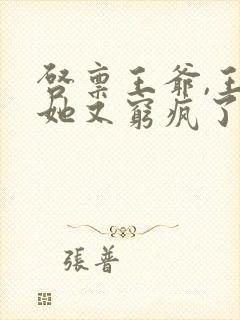 启禀王爷,王
她又窮疯了
張普